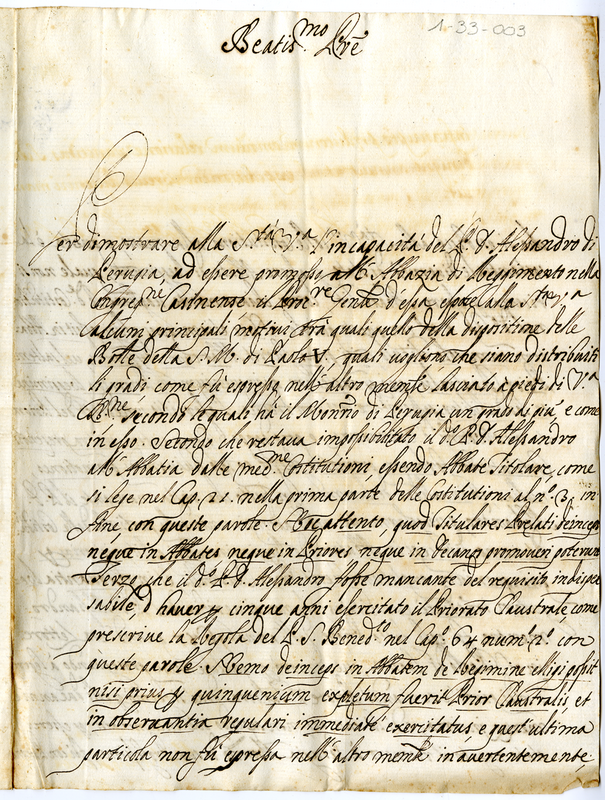 1-33-003
Beatis.mo Pre
Per dimostrare alla S.tà V.a l'incapacità del P. D. Alessandro di
Perugia ad essere promosso all'Abbazia di Reggimento nella
Congreg.ne Casinense il Proc.re Gen.le d'essa espose alla S.tà V.a
alcuni principali motivi trà quali quello della dispositione delle
Bolle della S. M. di Paolo V. quali vogliono che siano distribuiti
li gradi come fù espresso nell'altro mem.le lasciato a piedi di V.a
B.ne secondo le quali hà il Mon.rio di Perugia un grado di più e come
in esso. Secondo che restava impossibilitato il d.o P. D. Alessandro
all'Abbatia dalle med.me Costitutioni essendo Abbate Titolare come
si lege nel Cap. 21. nella prima parte delle Costitutioni al n.o 3. in
fine con queste parole. Hoc attento, quod Titulares Prelati deinceps
neque in Abbates neque in Priores neque in Decanos promoveri poterunt
Terzo che il d.o P. D. Alessandro fosse mancante del requisito indispe
sabile, d'haver p cinque anni esercitato il Priorato Claustrale, come
prescrive la Regola del P. S. Bened.to nel Cap.o 64 num.o 2.o con
queste parole. Nemo deinceps in Abbatem de Regimine eligi possit
nisi prius p quinquenium expletum fuerit Prior Claustralis, et
in observantia regulari immediatè exercitatus e quest'ultima
particola non fù espressa nell'altro mem.le inavertentemente